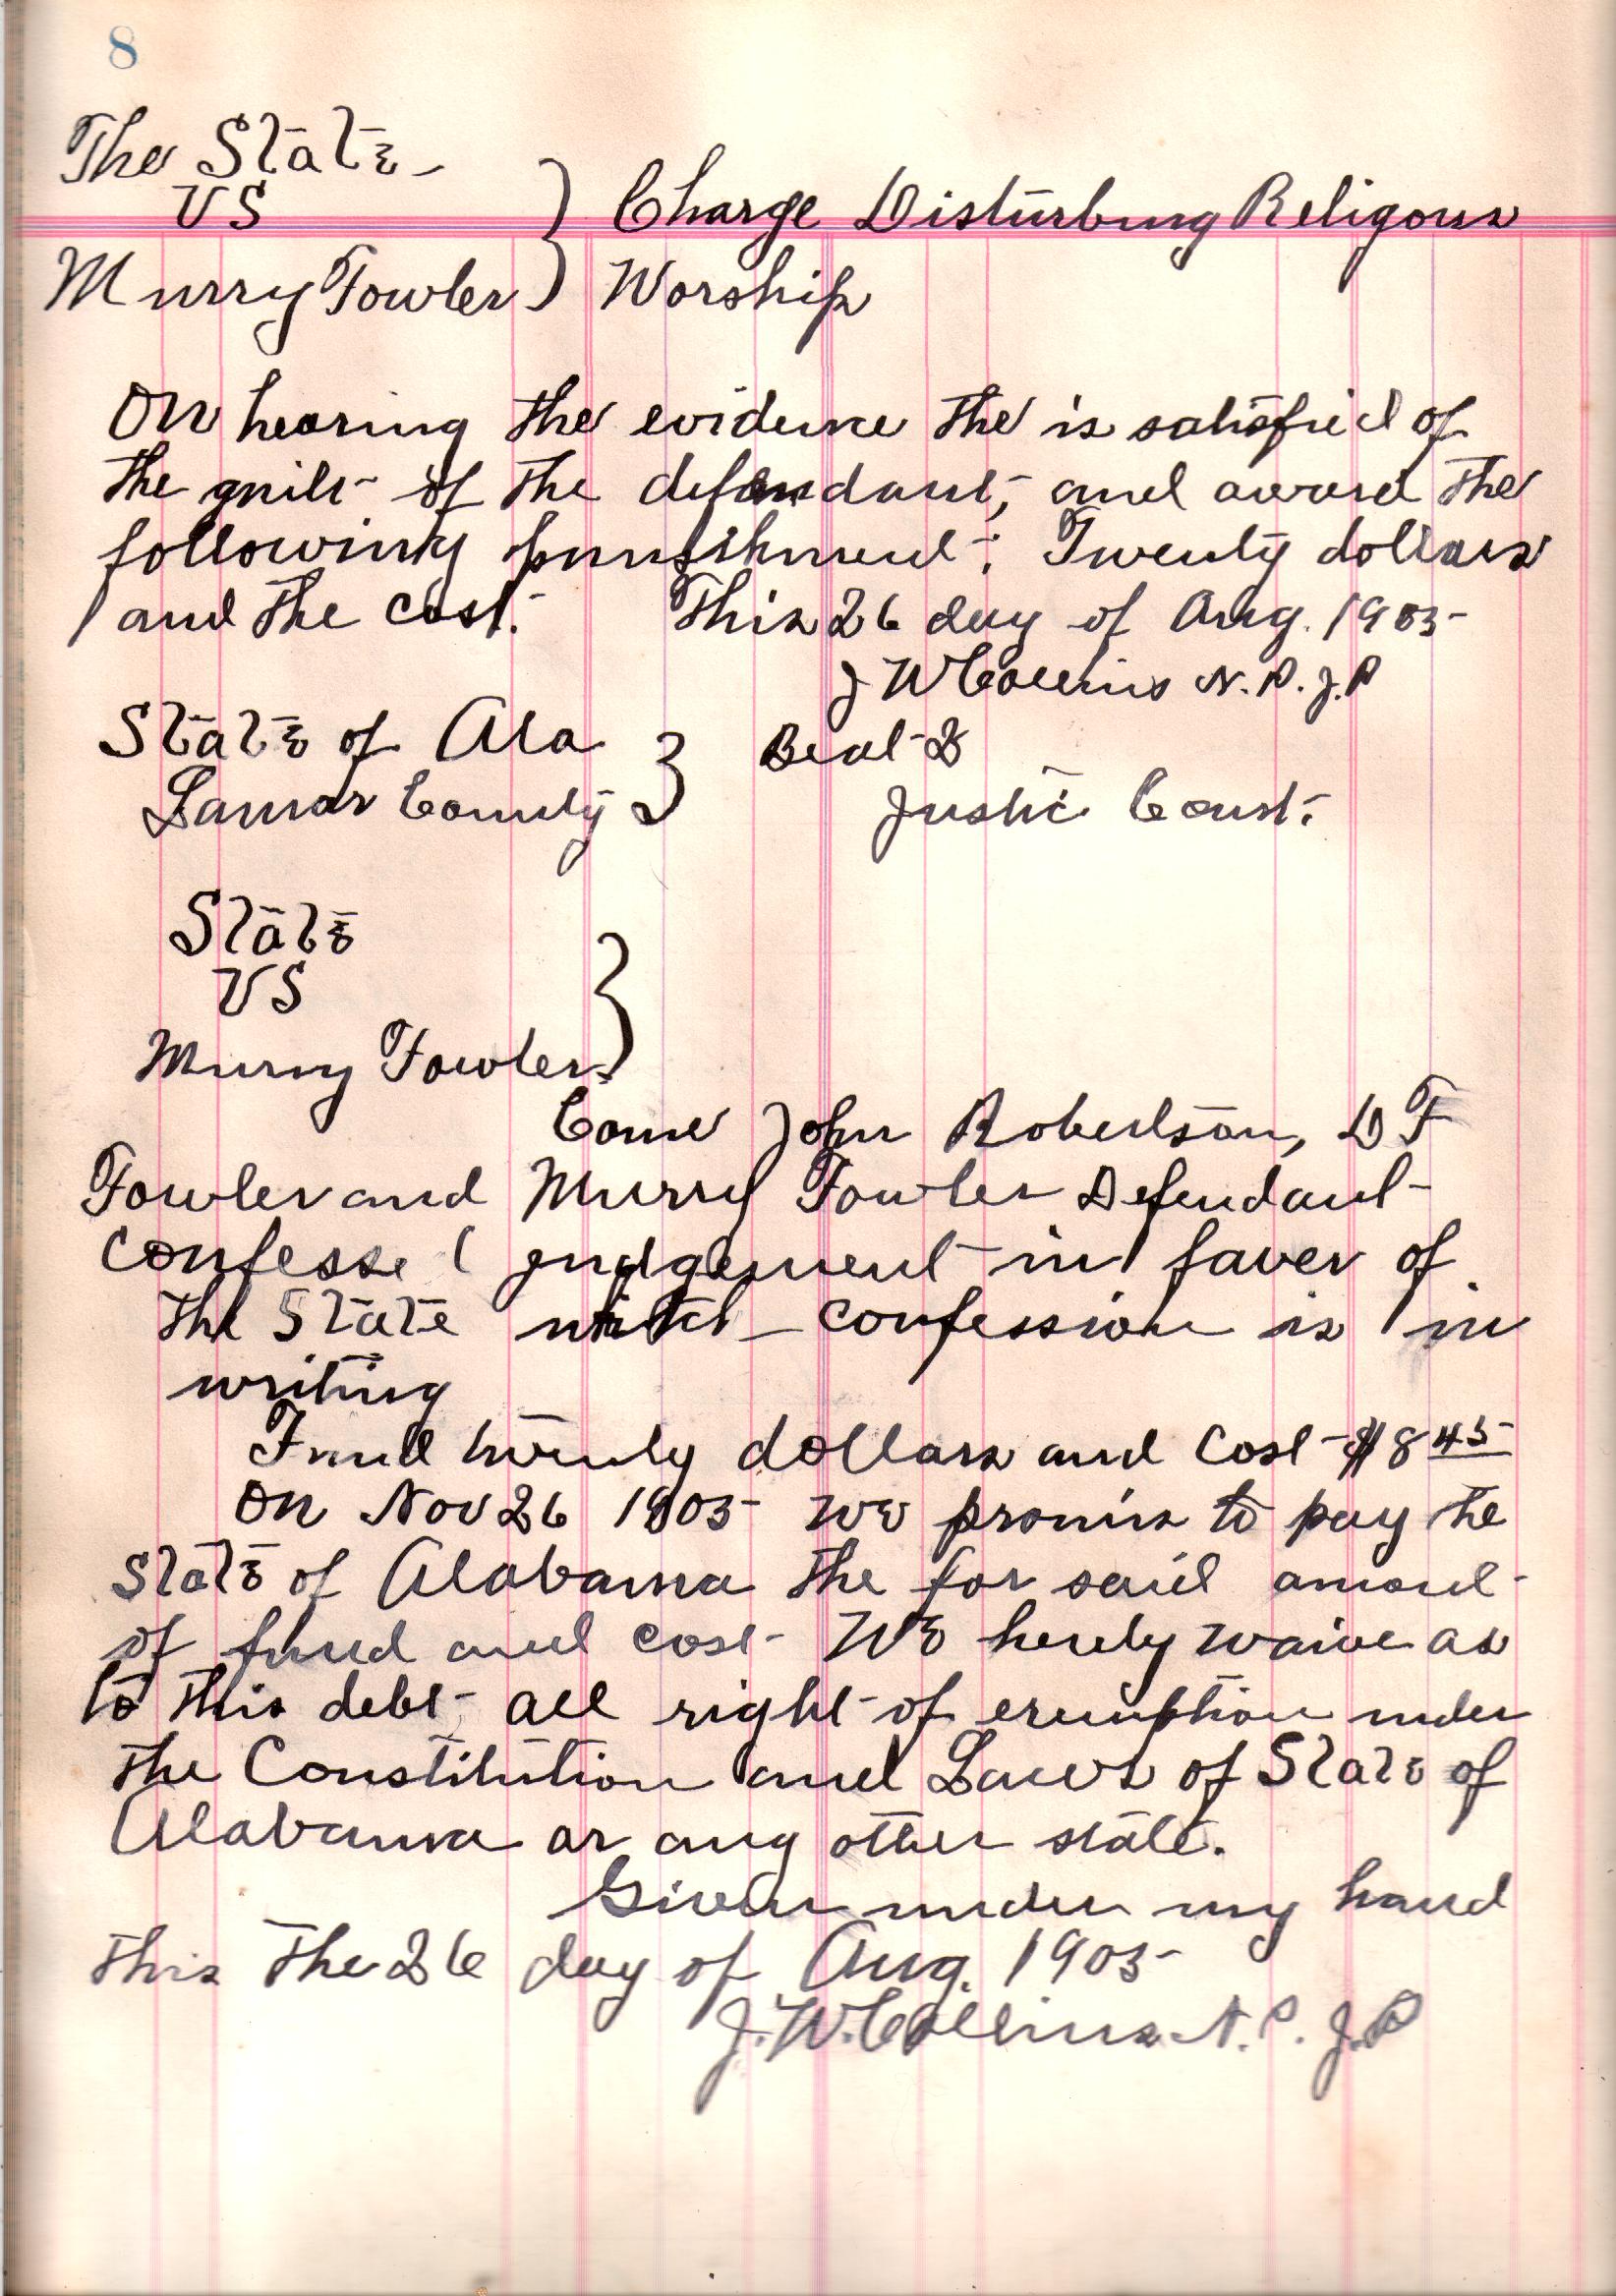 8
The State
VS
Murry Fowler } Charge Disturbing Religous
Worship
On hearing the evidence the is satisfied of
the guilt of the defendant, and award the
following punishment: Twenty dollars
and the cost. This 26 day of Aug. 1905
J W Collins N.P. J.P
State of Ala } Beat 8
Lamar County } Justic Court.
State
VS
Murry Fowler }
Come John Robertson, D F
Fowler and Murry Fowler Defendant
Confesse judgement in faver of
the State confession is in
writing
Find twenty dollars and Cost $8 45
On Nov 26 1905 We promis to pay the
State of Alabama the for said amount
of find and cost We hereby waive as
to this debt all right of exemption under
the Constitution and Laws of State of
Alabama or any other state.
Given under my hand
this the 26 day of Aug. 1905
J. W. Collins N.P. J.P